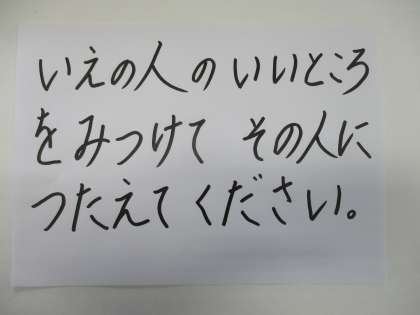 いえの人の いいところ
を みつけて その人に
つたえて ください。